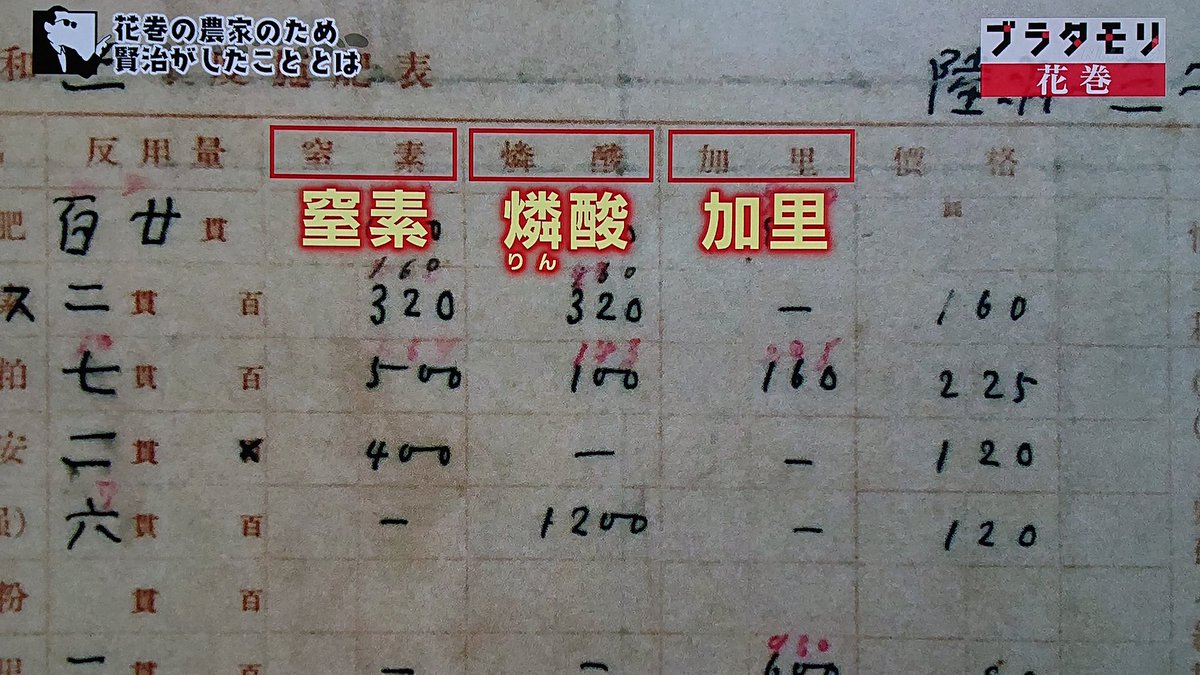 花巻の農家のため
賢治がしたこととは
ブラタモリ
花巻
和 表
反用量 窒素 燐酸 加里 價格
窒素 燐酸 加里
りん
肥 百廿貫
160
ス 二貫 百 320 320 — 160
粕 七貫 百 500 100 160 225
安 二貫 400 — — 120
六貫 百 — 1200 — 120
粉 貫 百
肥 一貫 百 — —